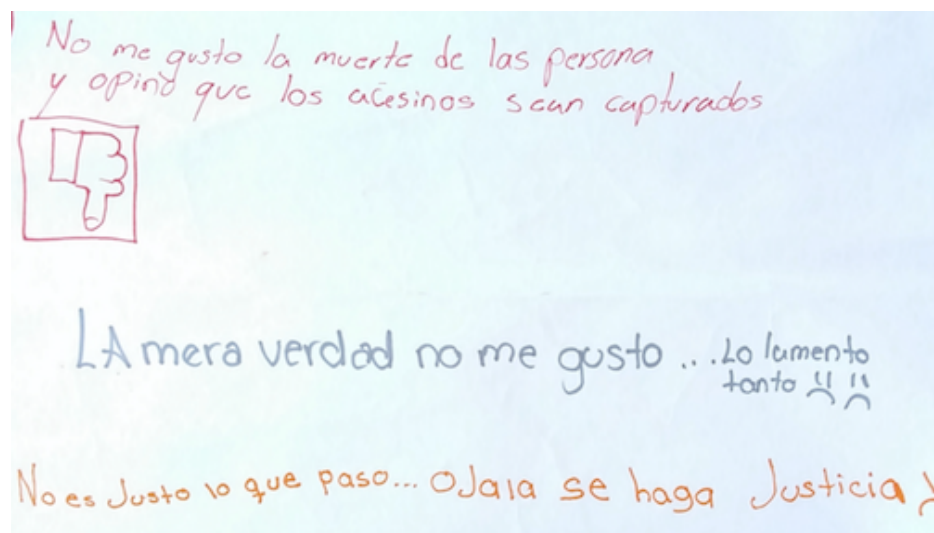 No me gusto la muerte de las persona
y opinó que los acesinos sean capturados
LA mera verdad no me gusto ... Lo lamento
tanto
No es Justo lo que paso... OJala se haga Justicia